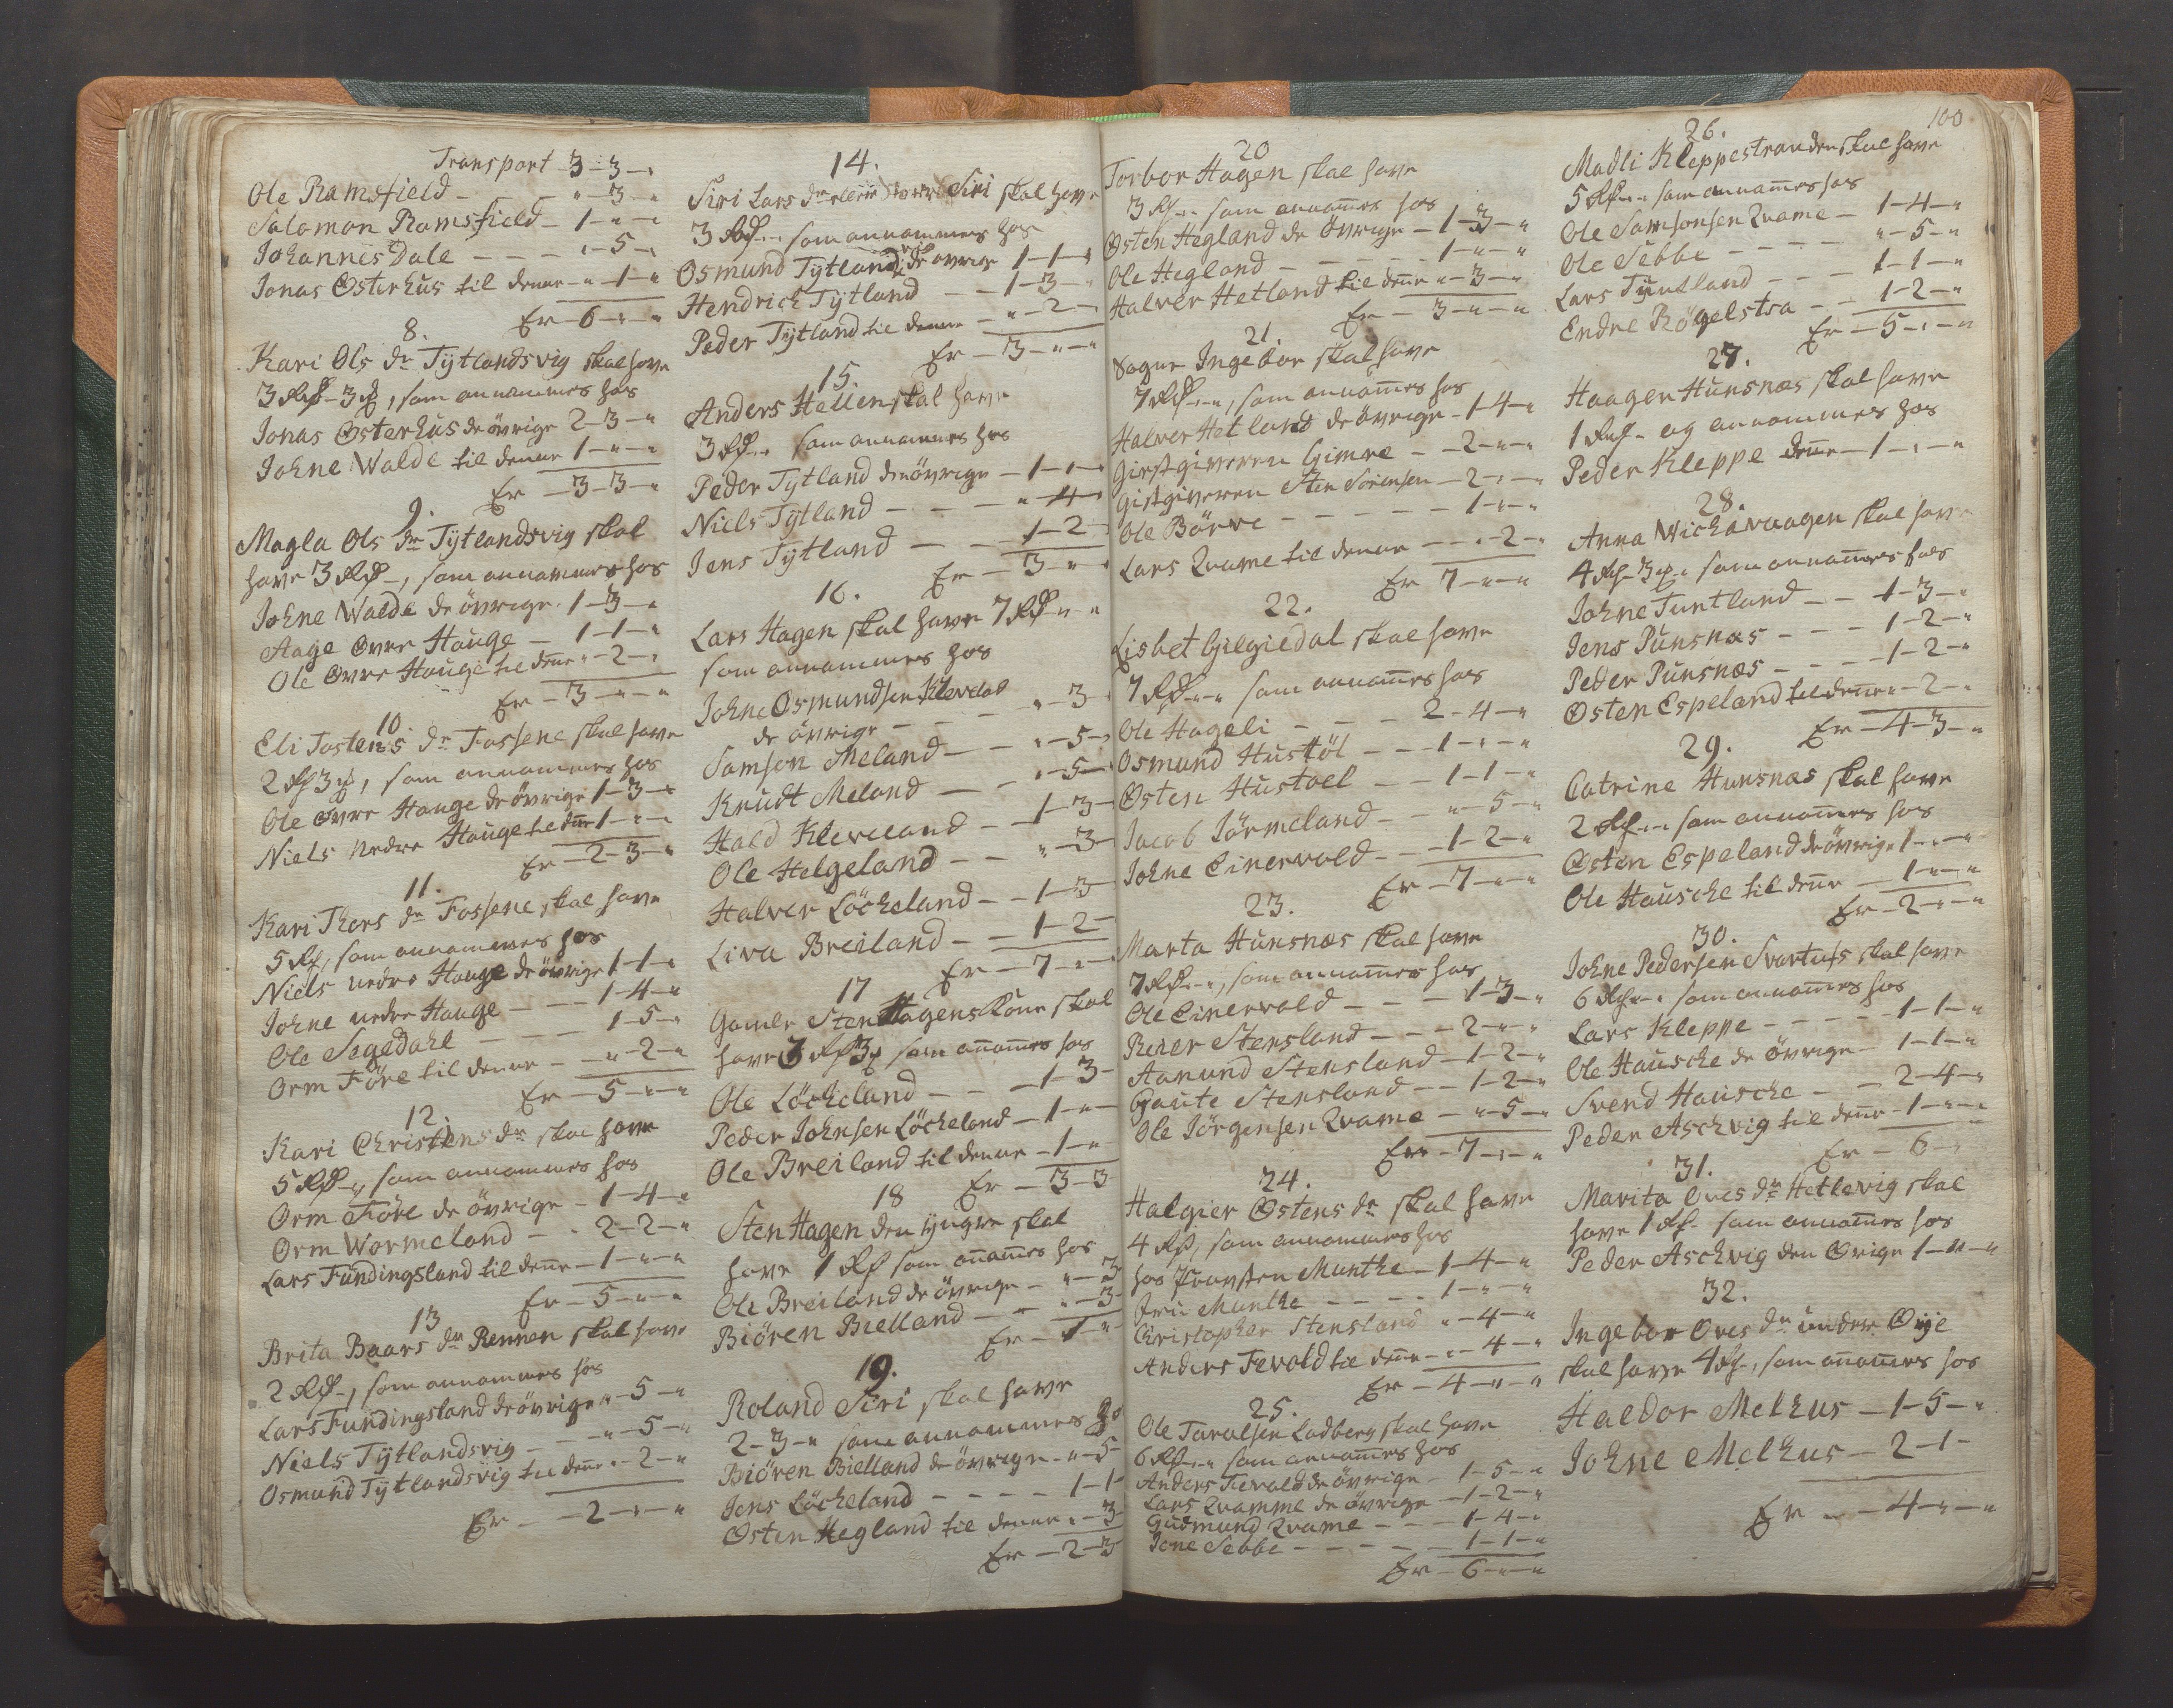 Transport 3-3-"
Ole Ramsfield - - - "-3-"
Salomon Ramsfield - 1-"-"
Johannis Dale - - - "-5-"
Jonas Østerhus til denne - "-1-"
Er - 6-"-"
8.
Kari Ols dr Tÿtlandsvig skal have
3 Rdl - 3 #, som annammes hos
Jonas Østerhus de øvrige 2-3-"
Johne Walde til denne 1-"-"
Er - 3-3-"
9.
Magla Ols dr Tÿtlandsvig skal
have 3 Rdl -, som annammes hos
Johne Walde de øvrige - 1-3-"
Aage Øvre Hauge - 1-1-"
Ole Øvre Hauge til denne "-2-"
Er - 3-"-"
10.
Eli Tostens dr Fossene skal have
2 Rdl 3 #, som annammes hos
Ole Øvre Hauge de øvrige 1-3-"
Niels Nedre Hauge til denne 1-"-"
Er - 2-3-"
11.
Kari Thors dr Fossene skal have
5 Rdl, som annammes hos
Niels nedre Hauge de øvrige 1-1-"
Johne nedre Hauge - - 1-4-"
Ole Segedahl - - - 1-5-"
Orm Före til denne - "-2-"
Er - 5-"-"
12.
Kari Christens dr skal have
5 Rdl -, som annammes hos
Orm Före de øvrige - 1-4-"
Orm Wormeland - - 2-2-"
Lars Fundingsland til denne - 1-"-"
Er - 5-"-"
13
Brita Baars dr Rennen skal have
2 Rdl -, som annammes hos
Lars Fundingsland de øvrige "-5-"
Niels Tÿtlandsvig - - "-5-"
Osmund Tÿtlandsvig til denne "-2-"
Er - - 2-"-"
14.
Siri Lars dr eller Siri skal have
3 Rdl -"- som annammes hos
Osmund Tÿtland de øvrige 1-1-"
Hendrich Tÿtland - 1-3-"
Peder Tÿtland til denne - "-2-"
Er - 3-"-"
15.
Anders Hellen skal have
3 Rdl -"- som annammes hos
Peder Tÿtland de øvrige - 1-"-"
Niels Tÿtland - - - "-4-"
Jens Tÿtland - - 1-2-
Er - 3-"-"
16.
Lars Hagen skal have 7 Rdl "-"
som annammes hos
Johne Osmundsen Kleveland
de øvrige - - - "-3-
Samson Meland - - "-5-
Knudt Meland - - "-5-
Hald Kleveland - - 1-3-
Ole Helgeland - - "-3-
Halver Löcheland - - 1-3-
Liva Breiland - - 1-2-
Er - 7-"-"
17
Gamle Sten Hagens Kone skal
have 3 Rdl 3 # som annammes hos
Ole Löcheland - - 1-3-
Peder Johnsen Löcheland - 1-"-
Ole Breiland til denne - 1-"-
Er - 3-3
18
Sten Hagen den yngre skal
have 1 Rdl som annammes hos
Ole Breiland de øvrige - "-3
Biören Bielland - - "-3-
Er - 1-"
19.
Roland Siri skal have
2-3-" som annammes hos
Biören Bielland de øvrige - "-5-
Jens Löcheland - - - - 1-1-
Østen Hegland til denne "-3-
Er - 2-3
100
20
Torbor Hagen skal have
3 Rdl -"- som annammes hos
Østen Hegland de øvrige - 1-3-"
Ole Hegland - - - - 1-"-"
Halver Hetland til denne "-3-"
Er - 3-"-"
21.
Sogne Ingebor skal have
7 Rdl -"-, som annammes hos
Halver Hetland de øvrige - 1-4-"
Giestgiveren Gimre - - 2-"-"
Gistgiveren Sten Sörensen - 2-"-"
Ole Börve - - - - - 1-"-"
Lars Qvame til denne - - "-2-"
Er 7-"-"
22.
Lisbet Gilgiedal skal have
7 Rdl -"- som annammes hos
Ole Hageli - - - 2-4-"
Osmund Hustöl - - 1-"-"
Østen Hustoel - - 1-1-"
Jacob Jörmeland - - "-5-"
Johne Einervold - - 1-2-"
Er - 7-"-"
23.
Marta Hunsnæs skal have
7 Rdl -"-, som annammes hos
Ole Einervold - - - 1-3-"
Peder Stensland - - 2-"-"
Aamund Stensland - 1-2-"
Gaute Stensland - - 1-2-"
Ole Jörgensen Qvame - "-5-"
Er - 7-"-"
24.
Halgier Østens dr skal have
4 Rdl, som annammes hos
hos Torsten Munthe - 1-4-"
Munthe - - - - 1-"-"
Christopher Stensland "-4-"
Anders Tevold til denne - "-4-"
Er - 4-"-"
25.
Ole Taralsen Ladberg skal have
6 Rdl -"- som annammes hos
Anders Tievold de øvrige - 1-5-"
Lars Qvamme de øvrige - 1-2-"
Gudmund Qvame - - 1-4-"
Jone Sebbe - - - - 1-1-"
Er - 6-"-"
26.
Madli Kleppestranden skal have
5 Rdl -"- som annammes hos
Ole Samsonsen Qvame - 1-4-"
Ole Sebbe - - - - "-5-"
Lars Tuntland - - 1-1-"
Endre Rögelstra - - 1-2-"
Er - 5-"-"
27.
Haagen Hunsnæs skal have
1 Rdl - og annammes hos
Peder Kleppe denne - 1-"-"
28.
Anna Wichavaagen skal have
4 Rdl 3 # " som annammes hos
Johne Tuntland - - 1-3-"
Jens Punsnæs - - - 1-2-"
Peder Punsnæs - - - 1-2-"
Østen Espeland til denne "-2-"
Er - 4-3-"
29.
Catrine Hunsnæs skal have
2 Rdl -"- som annammes hos
Østen Espeland de øvrige 1-"-"
Ole Hausche til denne - 1-"-"
Er - 2-"-"
30.
Johne Pedersen Svartufs skal have
6 Rdl -"- som annammes hos
Lars Kleppe - - - - 1-1-"
Ole Hausche de øvrige - 1-1-"
Svend Hausche - - 2-4-"
Peder Aschvig til denne - 1-"-"
Er - 6-"
31.
Marita Oves dr Hetlevig skal
have 1 Rdl - som annammes hos
Peder Aschvig den Øvrige 1-"-"
32.
Ingebor Oves dr under Øye
skal have 4 Rdl -, som annammes hos
Haldor Melhus - 1-5-"
Johne Melhus - 2-1-
Er - - 4-"-"